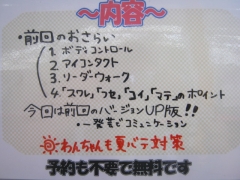 ～内容～
・前回のおさらい
1. ボディコントロール
2. アイコンタクト
3. リーダーウォーク
4.「スワレ」「フセ」「コイ」「マテ」のポイント
今回は前回のバージョンUP版!!
・一発芸でコミュニケーション
◎わんちゃんも夏バテ対策
予約も不要で無料です